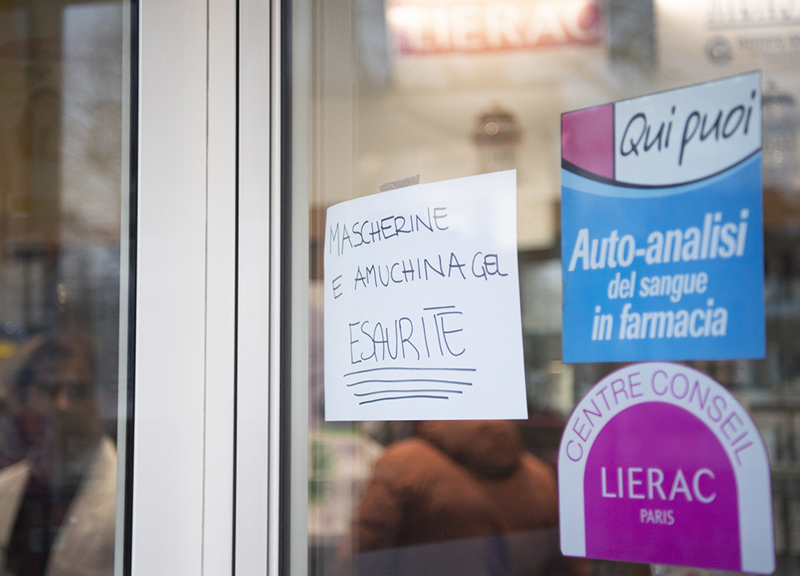 LIERAC
MASCHERINE
E AMUCHINA GEL
ESAURITE
Qui puoi
Auto-analisi
del sangue
in farmacia
CENTRE CONSEIL
LIERAC
PARIS